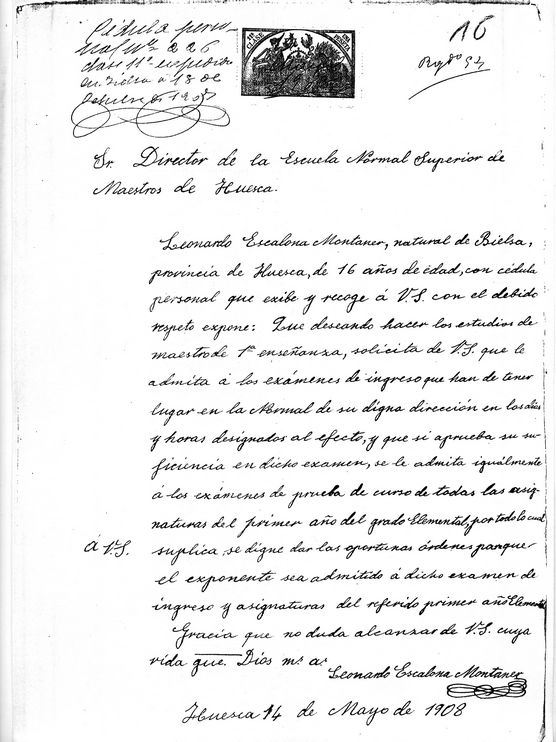 Cédula perso-
nal nº 226
clase 11ª expedida
en Bielsa á 18 de
de 1907
16
Sr. Director de la Escuela Normal Superior de
Maestros de Huesca.
Leonardo Escalona Montaner, natural de Bielsa,
provincia de Huesca, de 16 años de edad, con cédula
personal que exibe y recoge á V.S. con el debido
respeto expone: Que deseando hacer los estudios de
maestro de 1ª enseñanza, solicita de V.S. que le
admita á los exámenes de ingreso que han de tener
lugar en la Normal de su digna dirección en los días
y horas designados al efecto, y que si aprueba su su-
ficiencia en dicho examen, se le admita igualmente
á los exámenes de prueba de curso de todas las asig-
naturas del primer año del grado Elemental, por todo lo cual
á V.S. suplica se digne dar las oportunas órdenes para que
el exponente sea admitido á dicho examen de
ingreso y asignaturas del referido primer año Elemental
Gracia que no duda alcanzar de V.S. cuya
vida gue. Dios ms. as.
Leonardo Escalona Montaner
Huesca 14 de Mayo de 1908